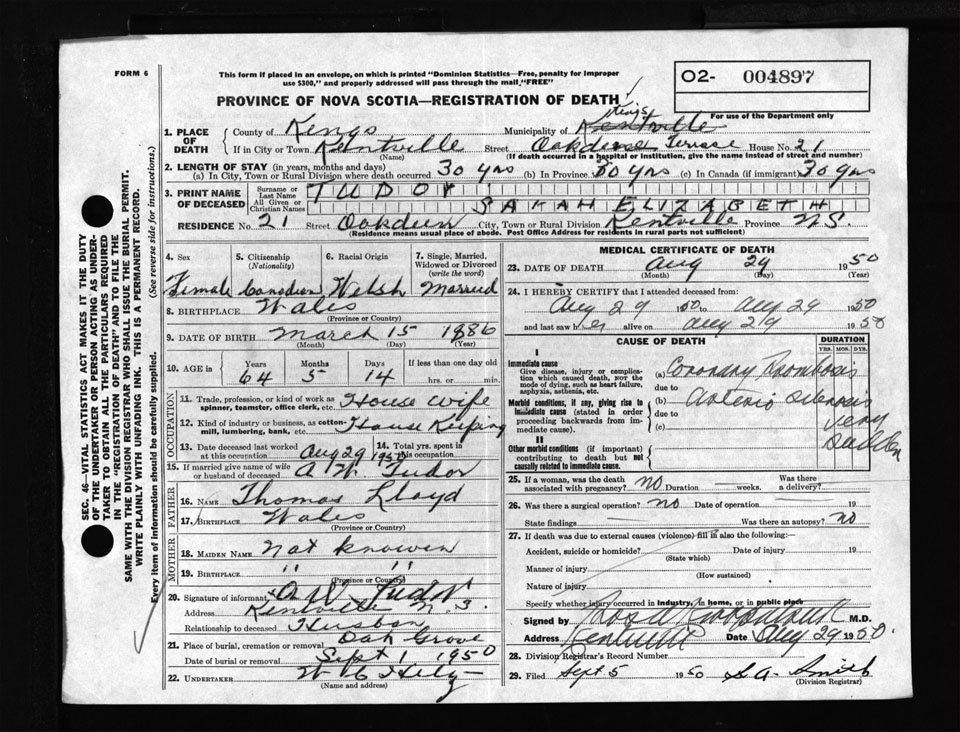 FORM 6
This form if placed in an envelope, on which is printed "Dominion Statistics—Free, penalty for improper
use $300," and properly addressed will pass through the mail "FREE"
O2- 004897
For use of the Department only
PROVINCE OF NOVA SCOTIA—REGISTRATION OF DEATH
1. PLACE OF DEATH
County of Kings Municipality of Kentville Kings
If in City or Town Kentville Street Oakdene Terrace House No. 21
(Name) (If death occurred in a hospital or institution, give the name instead of street and number)
2. LENGTH OF STAY (in years, months and days)
(a) In City, Town or Rural Division where death occurred 30 yrs (b) In Province 30 yrs (c) In Canada (if immigrant) 30 yrs
3. PRINT NAME OF DECEASED
Surname or Last Name TUDOR
All Given or Christian Names SARAH ELIZABETH
RESIDENCE No. 21 Street Oakdeen City, Town or Rural Division Kentville Province N.S.
(Residence means usual place of abode. Post Office Address for residents in rural parts not sufficient)
4. Sex
Female
5. Citizenship (Nationality)
Canadian
6. Racial Origin
Welsh
7. Single, Married, Widowed or Divorced (write the word)
Married
8. BIRTHPLACE Wales
(Province or Country)
9. DATE OF BIRTH March 15 1886
(Month) (Day) (Year)
10. AGE in Years Months Days If less than one day old
64 5 14 hrs. or min.
OCCUPATION
11. Trade, profession, or kind of work as spinner, teamster, office clerk, etc. House wife
12. Kind of industry or business, as cotton-mill, lumbering, bank, etc. House Keeping
13. Date deceased last worked at this occupation Aug 29 1950
14. Total yrs. spent in this occupation
15. If married give name of wife or husband of deceased A W. Tudor
FATHER
16. NAME Thomas Lloyd
17. BIRTHPLACE Wales
(Province or Country)
MOTHER
18. MAIDEN NAME not knowen
19. BIRTHPLACE " "
(Province or Country)
20. Signature of informant A W Tudor
Address Kentville N.S.
Relationship to deceased Husban
21. Place of burial, cremation or removal Oak Grove
Date of burial or removal Sept 1 1950
22. UNDERTAKER
(Name and address)
MEDICAL CERTIFICATE OF DEATH
23. DATE OF DEATH Aug 29 1950
(Month) (Day) (Year)
24. I HEREBY CERTIFY that I attended deceased from:
Aug 29 1950 to Aug 29 1950
and last saw her alive on Aug 29 1950
CAUSE OF DEATH
DURATION
YRS. MOS. DYS.
I
Immediate cause
Give disease, injury or complication which caused death, not the mode of dying, such as heart failure, asphyxia, asthenia, etc.
(a) Coronary Thombosis
due to
Morbid conditions, if any, giving rise to immediate cause (stated in order proceeding backwards from immediate cause).
(b) Arterio sclerosis
due to
(c)
very
sudden
II
Other morbid conditions (if important) contributing to death but not causally related to immediate cause.
25. If a woman, was the death associated with pregnancy? no Duration weeks. Was there a delivery?
26. Was there a surgical operation? no Date of operation 19
State findings Was there an autopsy? no
27. If death was due to external causes (violence) fill in also the following:—
Accident, suicide or homicide? Date of injury 19
(State which)
Manner of injury
(How sustained)
Nature of injury
Specify whether injury occurred in industry, in home, or in public place
Signed by M.D.
Address Kentville Date Aug 29 1950.
28. Division Registrar's Record Number
29. Filed Sept 5 1950 S.A. Smith
(Division Registrar)
SEC. 46—VITAL STATISTICS ACT MAKES IT THE DUTY
OF THE UNDERTAKER OR PERSON ACTING AS UNDER-
TAKER TO OBTAIN ALL THE PARTICULARS REQUIRED
IN THE "REGISTRATION OF DEATH" AND TO FILE THE
SAME WITH THE DIVISION REGISTRAR WHO SHALL ISSUE THE BURIAL PERMIT.
WRITE PLAINLY WITH UNFADING INK. THIS IS A PERMANENT RECORD.
Every item of information should be carefully supplied. (See reverse side for instructions.)